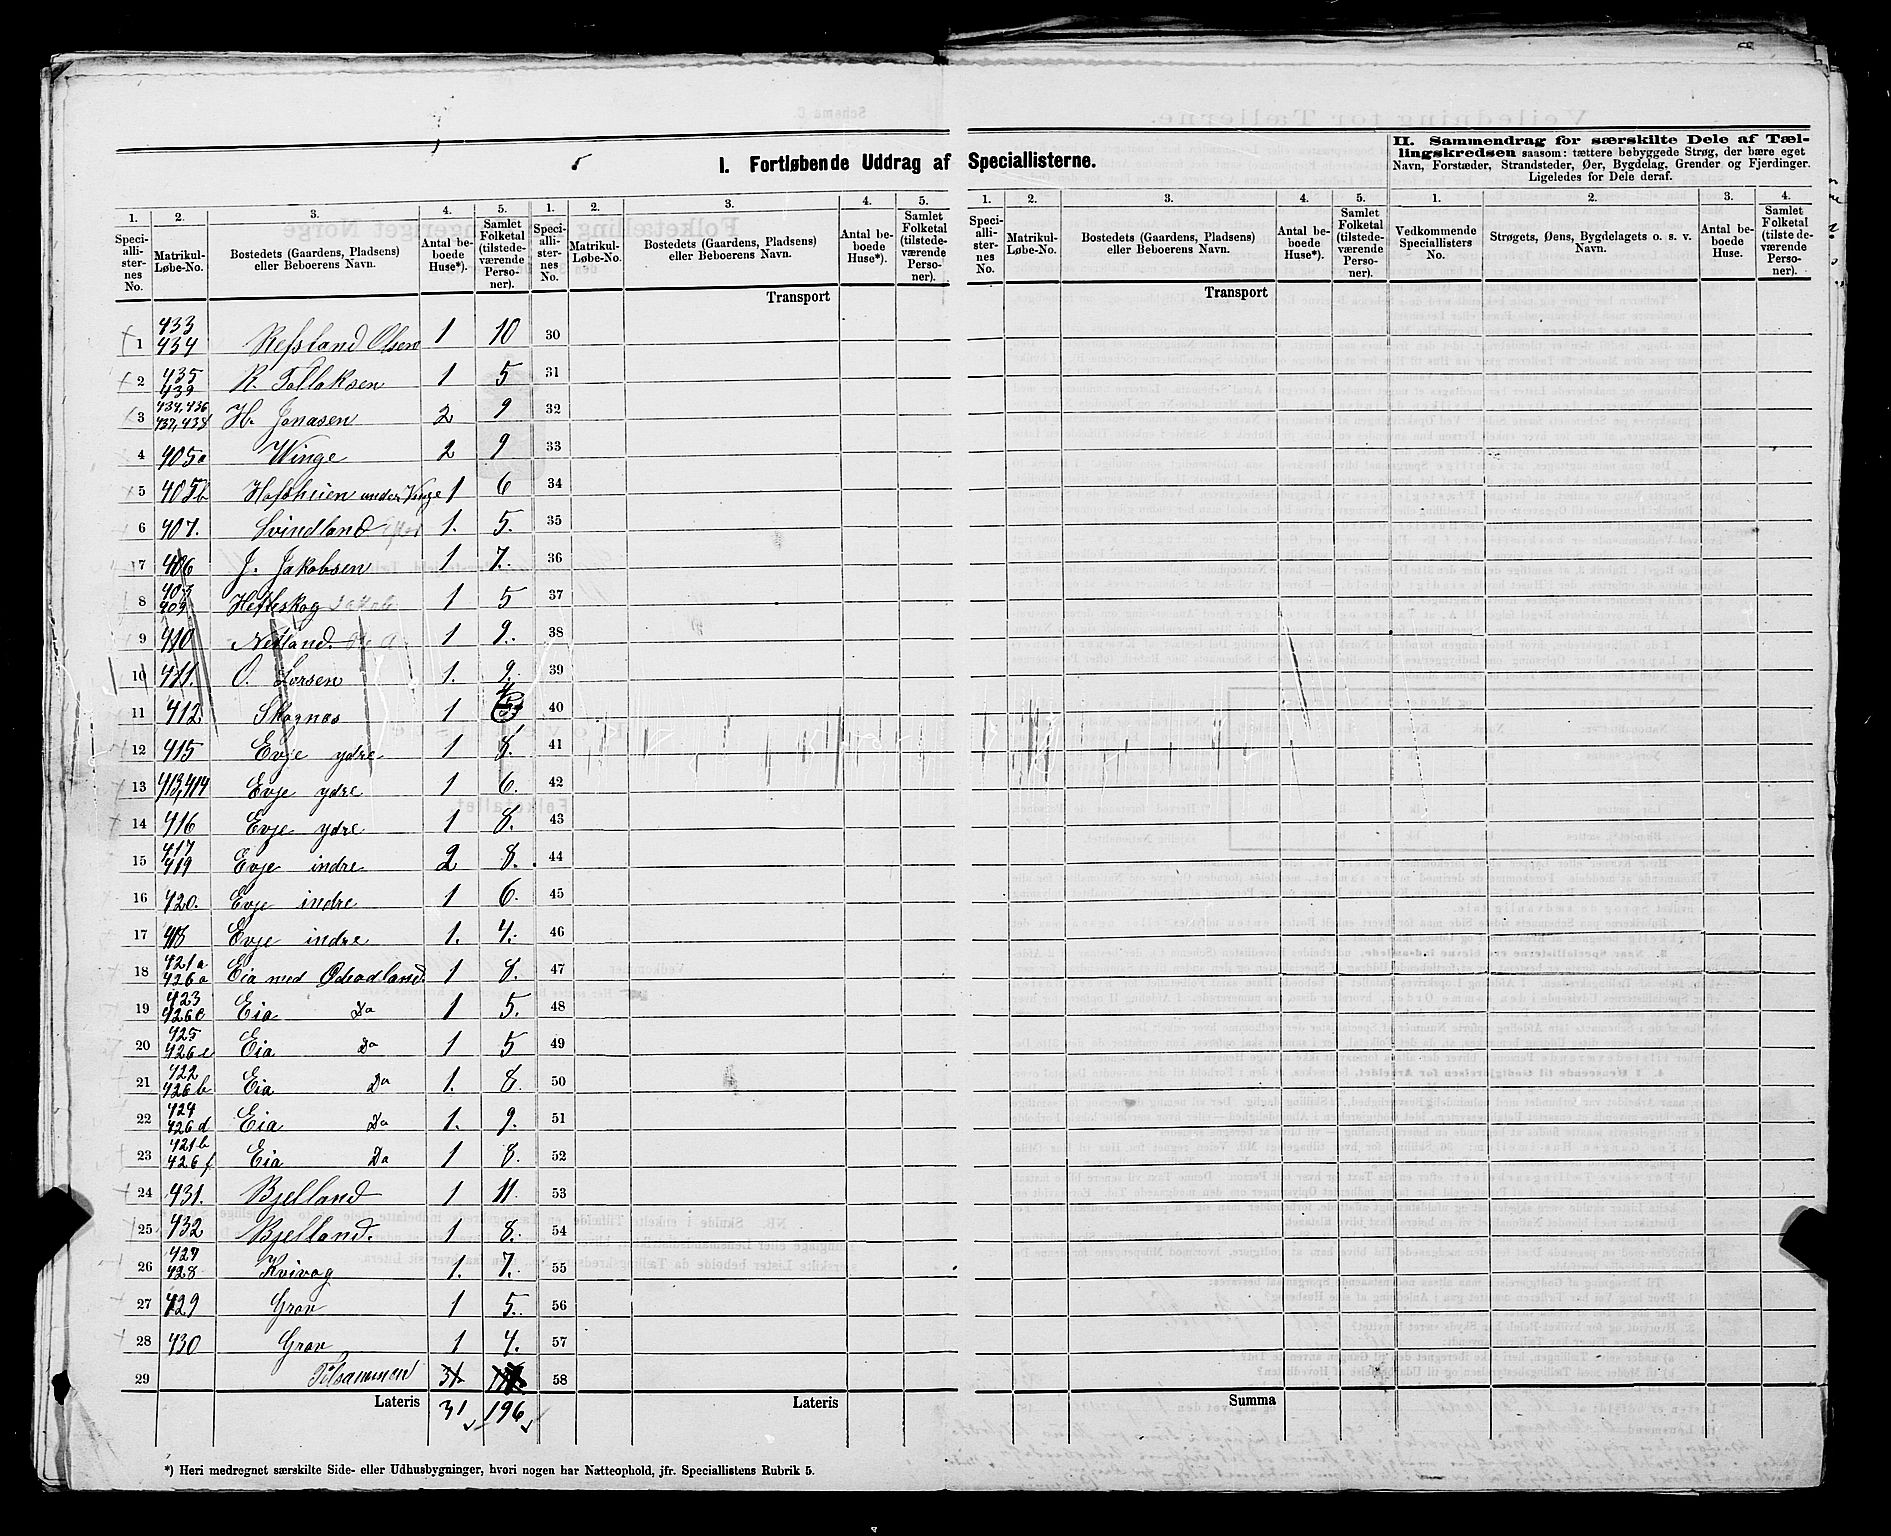 I. Fortløbende Uddrag af Speciallisterne.
II. Sammendrag for særskilte Dele af Tællingskredsen saasom: tættere bebyggede Strøg, der bære eget
Navn, Forstæder, Strandsteder, Øer, Bygdelag, Grender og Fjerdinger.
Ligeledes for Dele deraf.
1. 2. 3. 4. 5. 1. 2. 3. 4. 5. 1. 2. 3. 4. 5. 1. 2. 3. 4.
Speciallisternes No. Matrikul-Løbe-No. Bostedets (Gaardens, Pladsens) eller Beboerens Navn. Antal beboede Huse*). Samlet Folketal (tilstedeværende Personer).
Speciallisternes No. Matrikul-Løbe-No. Bostedets (Gaardens, Pladsens) eller Beboerens Navn. Antal beboede Huse*). Samlet Folketal (tilstedeværende Personer).
Speciallisternes No. Matrikul-Løbe-No. Bostedets (Gaardens, Pladsens) eller Beboerens Navn. Antal beboede Huse*). Samlet Folketal (tilstedeværende Personer).
Vedkommende Speciallisters No. Strøgets, Øens, Bygdelagets o. s. v. Navn. Antal beboede Huse. Samlet Folketal (tilstedeværende Personer).
Transport Transport
1 433 434 Refsland Olsen 1 10 30
2 435 439 R. Tollaksen 1 5 31
3 434, 436 437, 438 H. Jonasen 2 9 32
4 405a Winge 2 9 33
5 405b Hofsheien under Vinge 1 6 34
6 407. Svindland 1. 5. 35
7 406 J. Jakobsen 1 7. 36
8 409 Hefteskog 1 5 37
9 410 Netland 1 9. 38
10 411. O. Larsen 1. 9. 39
11 412 Skognæs 1 40
12 415 Evje ydre 1 8. 41
13 413,414 Evje ydre 1 6. 42
14 416 Evje ydre 1 8. 43
15 417 419 Evje indre 2 8. 44
16 420. Evje indre 1 6. 45
17 418 Evje indre 1. 4. 46
18 421a 426a Eia med Ødsadland 1 8. 47
19 423 426c Eia Do 1 5. 48
20 425 426e Eia Do 1 5 49
21 422 426b Eia Do 1. 8. 50
22 424 426d Eia Do 1. 9. 51
23 421b 426f Eia Do 1 8. 52
24 431. Bjelland 1 11. 53
25 432 Bjelland. 1 8. 54
26 427 428 Kvivog 1. 7. 55
27 429 Grov 1 5. 56
28 430 Grov 1 4. 57
29 Tilsammen 58
Lateris 31 196 Lateris Summa
*) Heri medregnet særskilte Side- eller Udhusbygninger, hvori nogen har Natteophold, jfr. Speciallistens Rubrik 5.